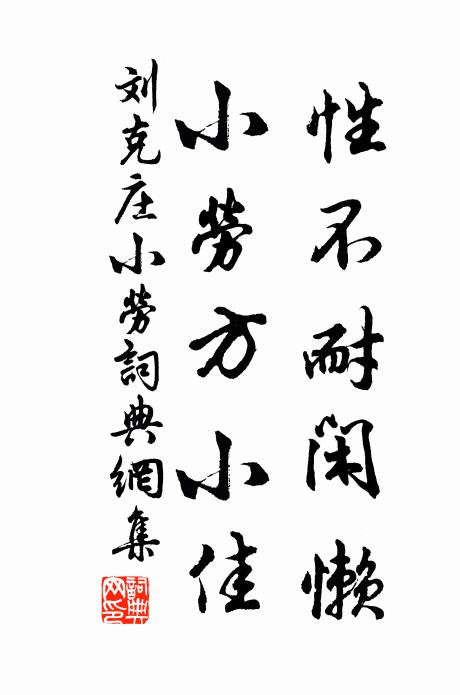 性不耐闲懒
小劳方小佳
刘克庄小劳詞典網集
詞典网印